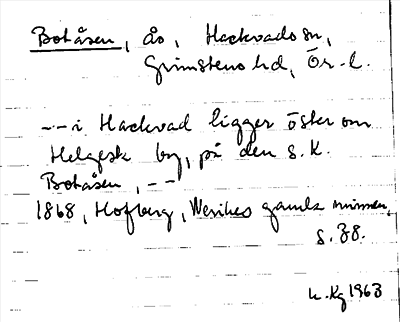 Botåsen, ås, Hackvads sn,
Grimstens hd, Ör. l.
--- i Hackvad ligger öster om
Helgesk by, på den s.k.
Botåsen, ---
1868, Hofberg, Nerikes gamla minnen,
s. 38.
Kg 1963